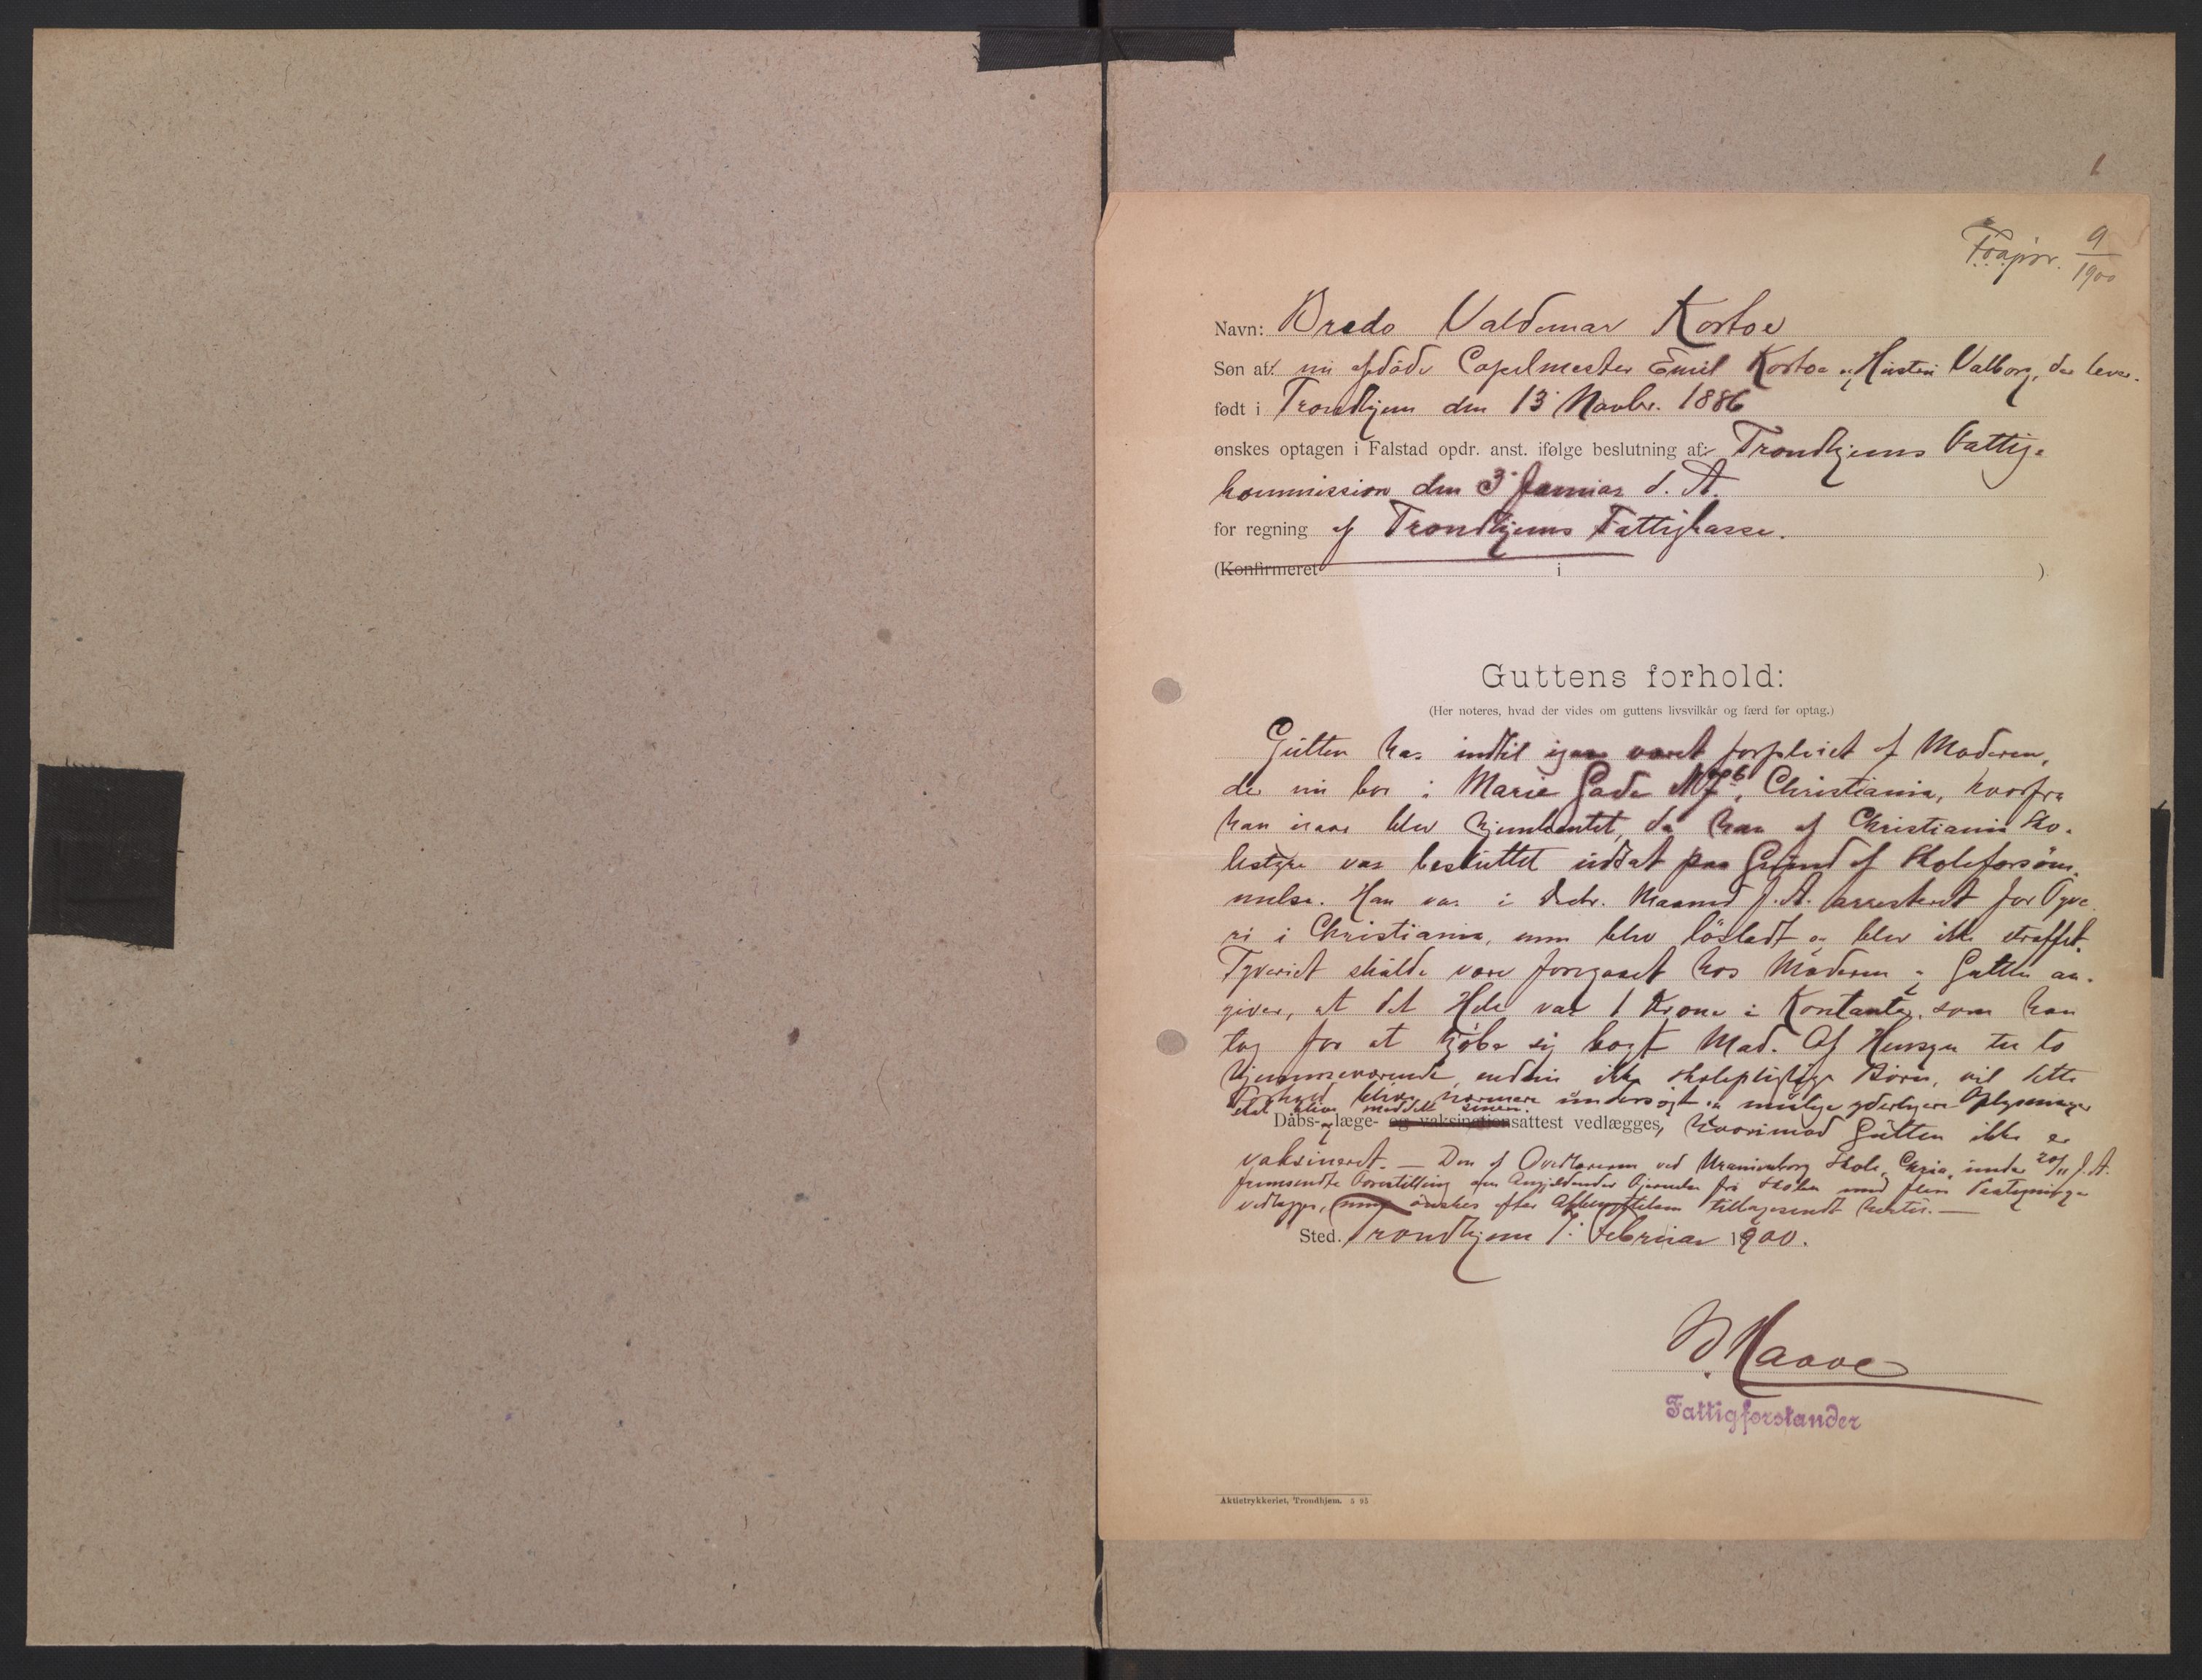 9
1900
Navn: Bredo Valdemar Kortoe
Søn af: nu afdøde Capelmester Emil Kortoe og Hustru Valborg, der lever.
født i Trondhjem den 13 Novbr. 1886
ønskes optagen i Falstad opdr. anst. ifølge beslutning af: Trondhjems Fattig-
kommission den 3 Januar d. A.
for regning af Trondhjems Fattigkasse.
(Konfirmeret i )
Guttens forhold:
(Her noteres, hvad der vides om guttens livsvilkår og færd før optag.)
Gutten har indtil igaar været forpleiet af Moderen,
der nu bor i Marie Gade Christiania, hvorfra
han igaar blev hjemhentet, da han af Christiania Sko-
lestyre var besluttet uddsat paa Grund af Skoleforsøm-
melse. Han var i Decbr. Maaned f. A. arresteret for Tyve
ri i Christiania, men blev løsladt og blev ikke straffet.
Tyveriet skulde være foregaaet hos Moderen og Gutten an-
giver, at det Hele var 1 Krone i Kontanter, som han
tog for at kjøbe sig kogt Mad. Af Hensyn til to
hjemmeværende, endnu ikke skolepligtige Børn, vil dette
Forhold blive nærmere undersøgt og mulige yderligere Oplysninger
skal blive meddelt senere.
Dåbs- og læge- og vaksinationsattest vedlægges, hvorimod Gutten ikke er
vaksineret. — Den af Overlæreren ved Uranienborg Skole, Chria, under 20/11 f. A.
fremsendte Forestilling om Angjeldendes Fjernelse fra Skolen med flere Paategninger
vedlægges, men ønskes efter Afbenyttelsen tilbagesendt hertil. —
Sted. Trondhjem 7. Februar 1900.
Maave
Fattigforstander
Aktietrykkeriet, Trondhjem. 5 95